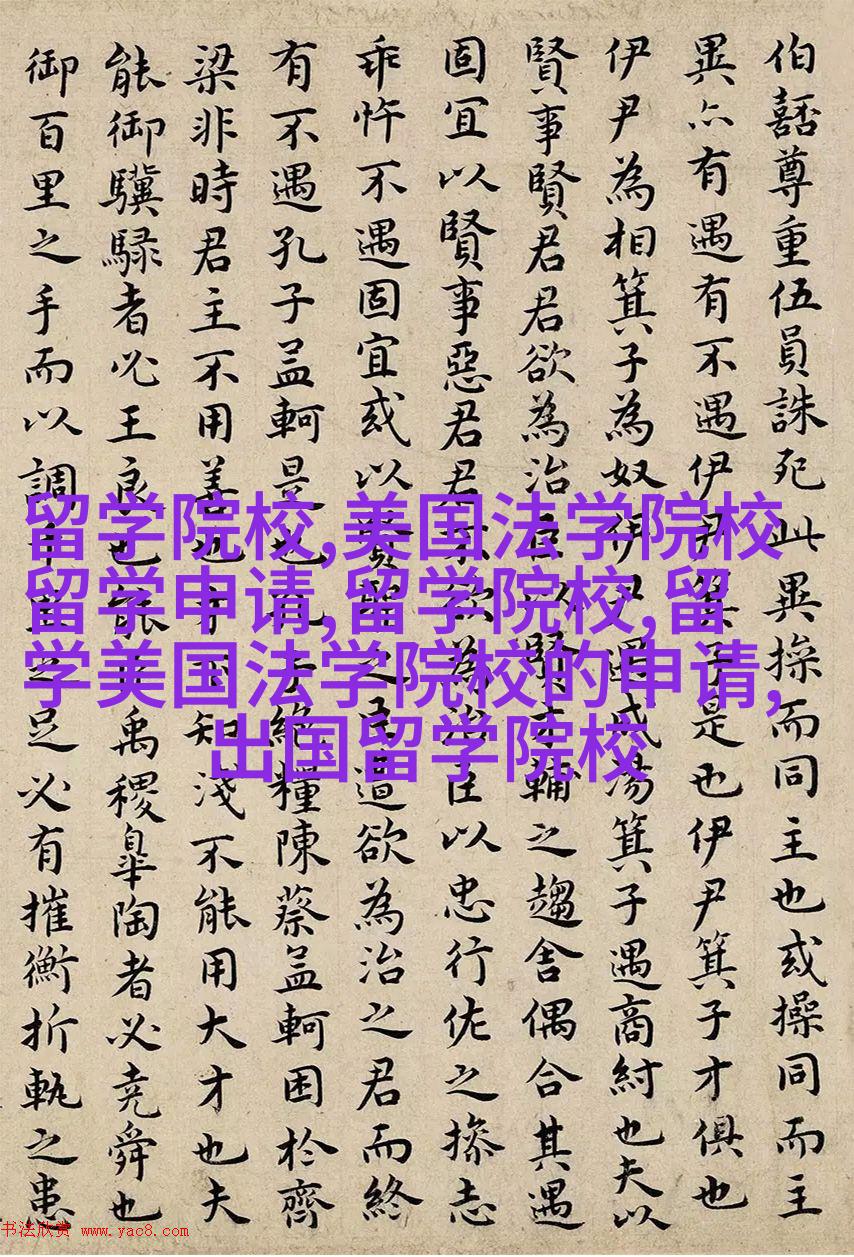 伯嚭尊重伍員誅死此異操而同主也或操同而主
異亦有遇有不遇伊尹箕子是也伊尹箕子才俱也
伊尹為相箕子為奴伊尹遇成湯箕子遇商紂也夫以
賢事賢君君欲為治臣以賢才輔之趨舍偶合其遇
固宜以賢事惡君君不欲為治臣以忠行佐之操志
乖忤不遇固宜或以賢聖之臣遭欲為治之君而終
有不遇孔子孟軻是也孔子絕糧陳蔡孟軻困於齊
梁非時君主不用善也才下知淺不能用大才也夫
能御驥騄者必王良也能臣禹稷皋陶者必堯舜也
御百里之手而以調千里之足必有摧衡折軛之患
留学院校,美国法学院校
留学申请,留学院校,留
学美国法学院校的申请,
出国留学院校
书法欣赏 www.yac8.com